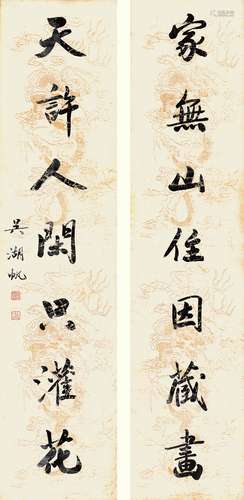 家無山住因藏畫
天許人閑只灌花
吳湖帆